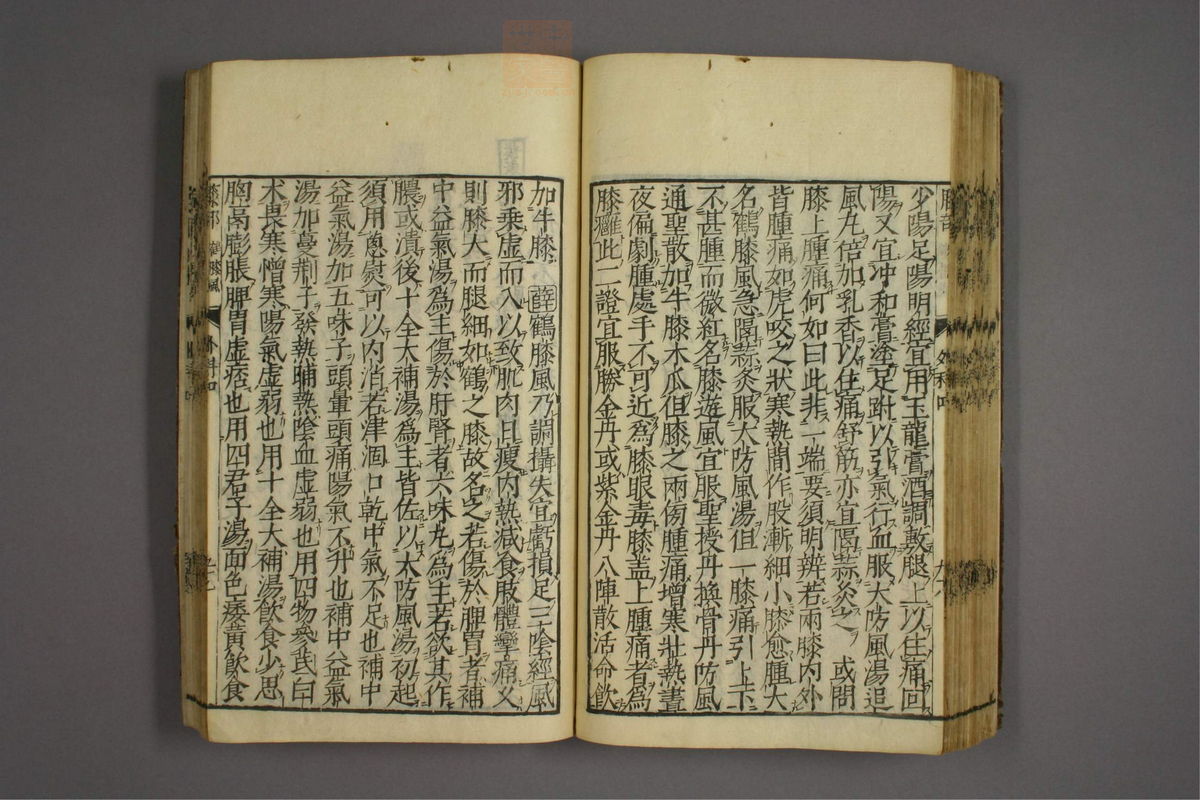 少陽足陽明經宜用玉龍膏酒調敷腿上以住痛回
陽又宜冲和膏塗足趾以引氣行血服大防風湯追
風丸倍加乳香以住痛舒筋亦宜隔蒜灸之 或問
膝上腫痛何如曰此非一端要須明辨若兩膝内外
皆腫痛如虎咬之狀寒熱間作股漸細小膝愈腫大
名鶴膝風急隔蒜灸服大防風湯但一膝痛引上下
不甚腫而微紅名膝遊風宜服聖授丹換骨丹防風
通聖散加牛膝木瓜但膝之兩傍腫痛增寒壯熱晝
夜偏劇腫處手不可近爲膝眼毒膝盖上腫痛者爲
膝癰此二證宜服勝金丹或紫金丹八陣散活命飲
加牛膝 薛鶴膝風乃調攝失宜虧損足三陰經風
邪乘虛而入以致肌肉日瘦内熱減食肢體攣痛又
則膝大而腿細如鶴之膝故名之若傷於脾胃者補
中益氣湯爲主傷於肝腎者六味丸爲主若欲其作
膿或潰後十全大補湯爲主皆佐以大防風湯初起
須用葱熨可以内消若津涸口乾中氣不足也補中
益氣湯加五味子頭暈頭痛陽氣不升也補中益氣
湯加蔓荆子發熱晡熱陰血虛弱也用四物參芪白
术畏寒憎寒陽氣虛弱也用十全大補湯飲食少思
胸膈膨脹脾胃虛痞也用四君子湯面色痿黃飲食
膝部 鶴膝風 外科四